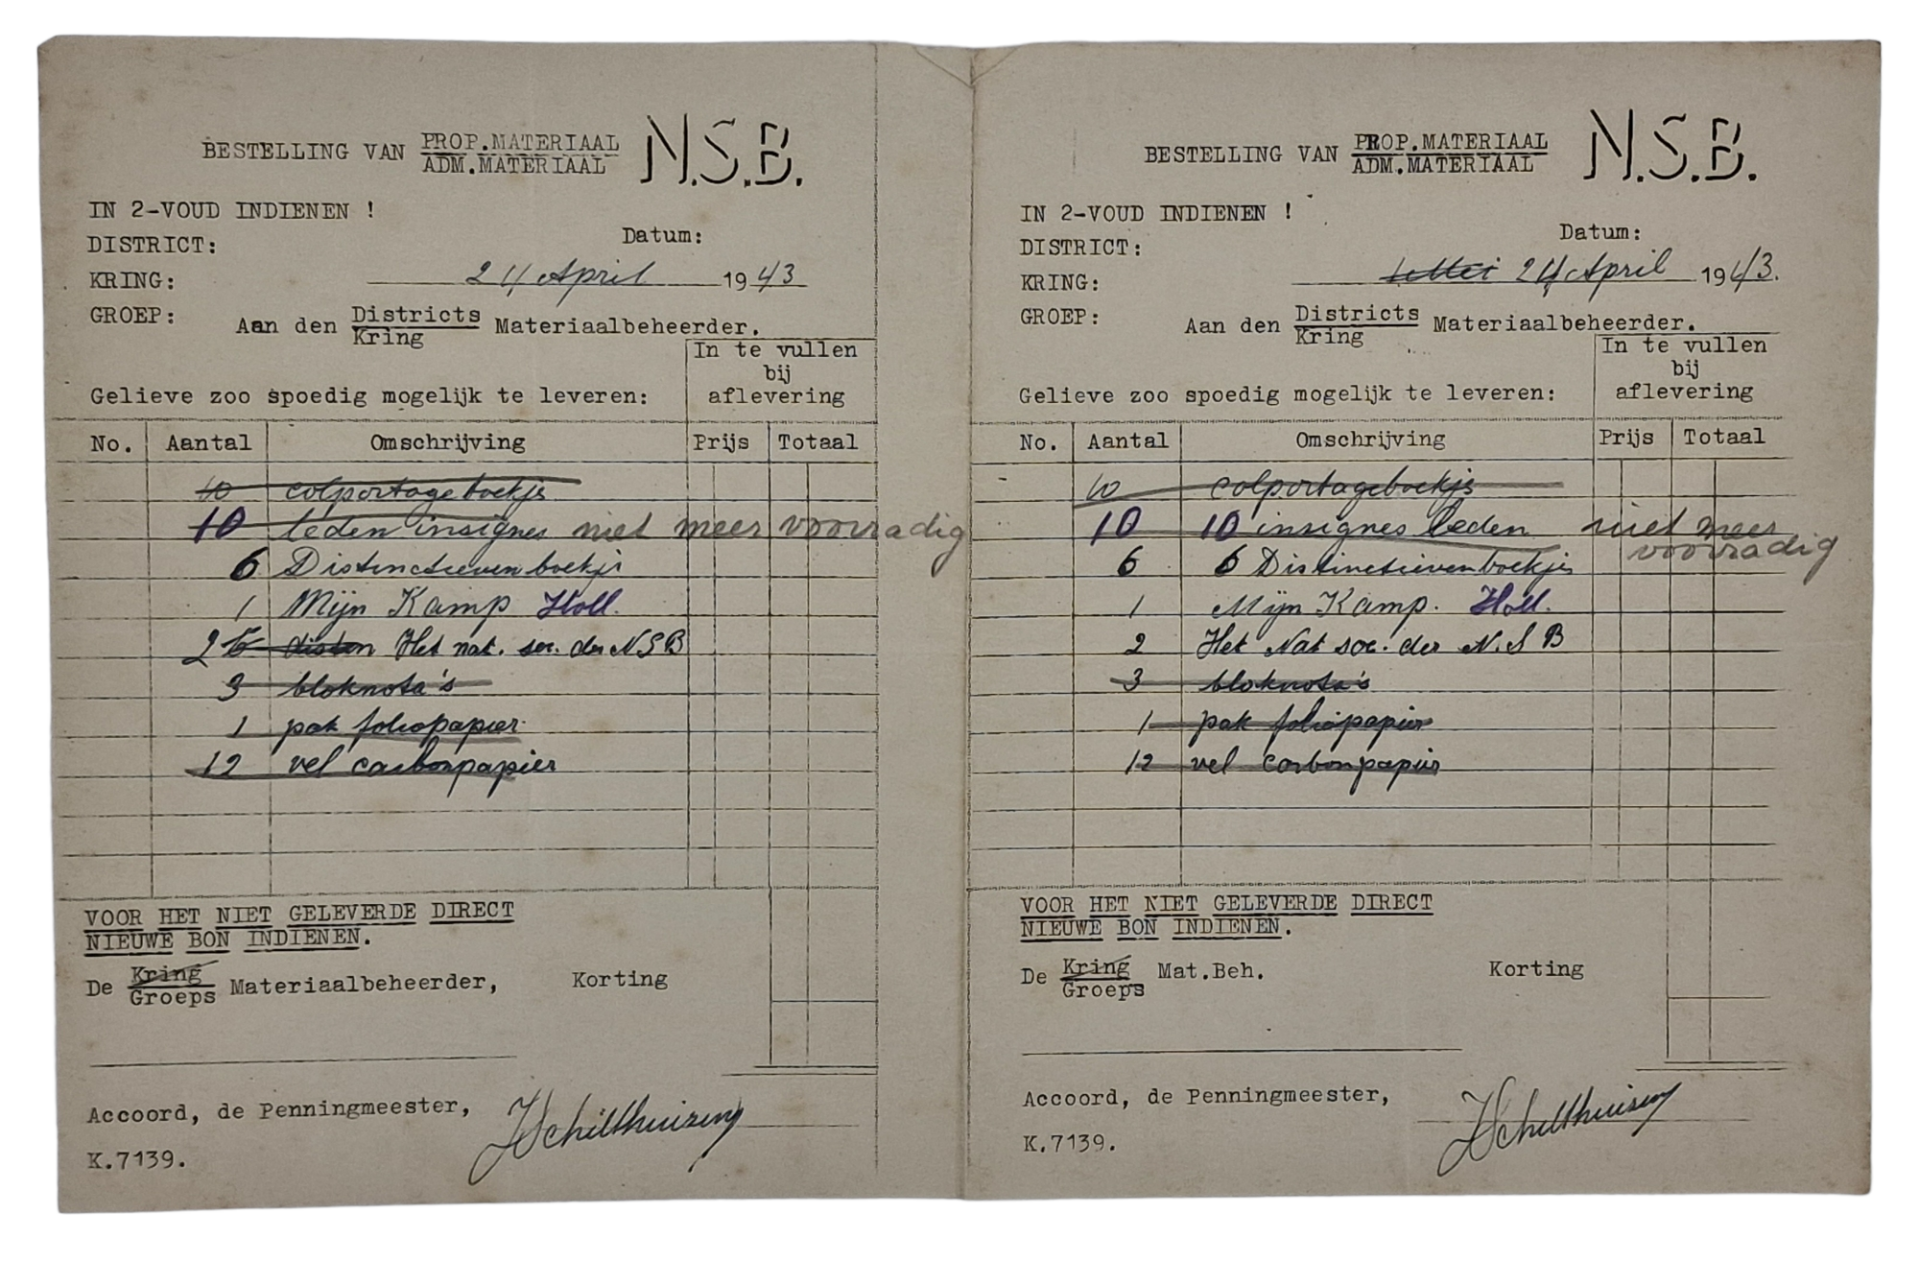 BESTELLING VAN PROP.MATERIAAL N.S.B.
ADM.MATERIAAL
IN 2-VOUD INDIENEN !
DISTRICT: Datum:
KRING: 24 April 1943
GROEP: Aan den Districts Materiaalbeheerder.
Kring
In te vullen
bij
Gelieve zoo spoedig mogelijk te leveren: aflevering
No. Aantal Omschrijving Prijs Totaal
10 colportageboekjes
10 leden insignes niet meer voorradig
6 Distinctievenboekjes
1 Mijn Kamp Holl.
2 Het nat. soc. der NSB
3 bloknota's
1 pak foliopapier
12 vel carbonpapier
VOOR HET NIET GELEVERDE DIRECT
NIEUWE BON INDIENEN.
De Kring Materiaalbeheerder, Korting
Groeps
Accoord, de Penningmeester, Schilthuizen
K.7139.
BESTELLING VAN PROP.MATERIAAL N.S.B.
ADM.MATERIAAL
IN 2-VOUD INDIENEN !
DISTRICT: Datum:
KRING: 24 April 1943.
GROEP: Aan den Districts Materiaalbeheerder.
Kring
In te vullen
bij
Gelieve zoo spoedig mogelijk te leveren: aflevering
No. Aantal Omschrijving Prijs Totaal
10 colportageboekjes
10 10 insignes leden niet meer
voorradig
6 6 Distinctievenboekjes
1 Mijn Kamp. Holl.
2 Het Nat soc. der N.S B
3 bloknota's
1 pak foliopapier
12 vel carbonpapier
VOOR HET NIET GELEVERDE DIRECT
NIEUWE BON INDIENEN.
De Kring Mat.Beh. Korting
Groeps
Accoord, de Penningmeester, Schilthuizen
K.7139.